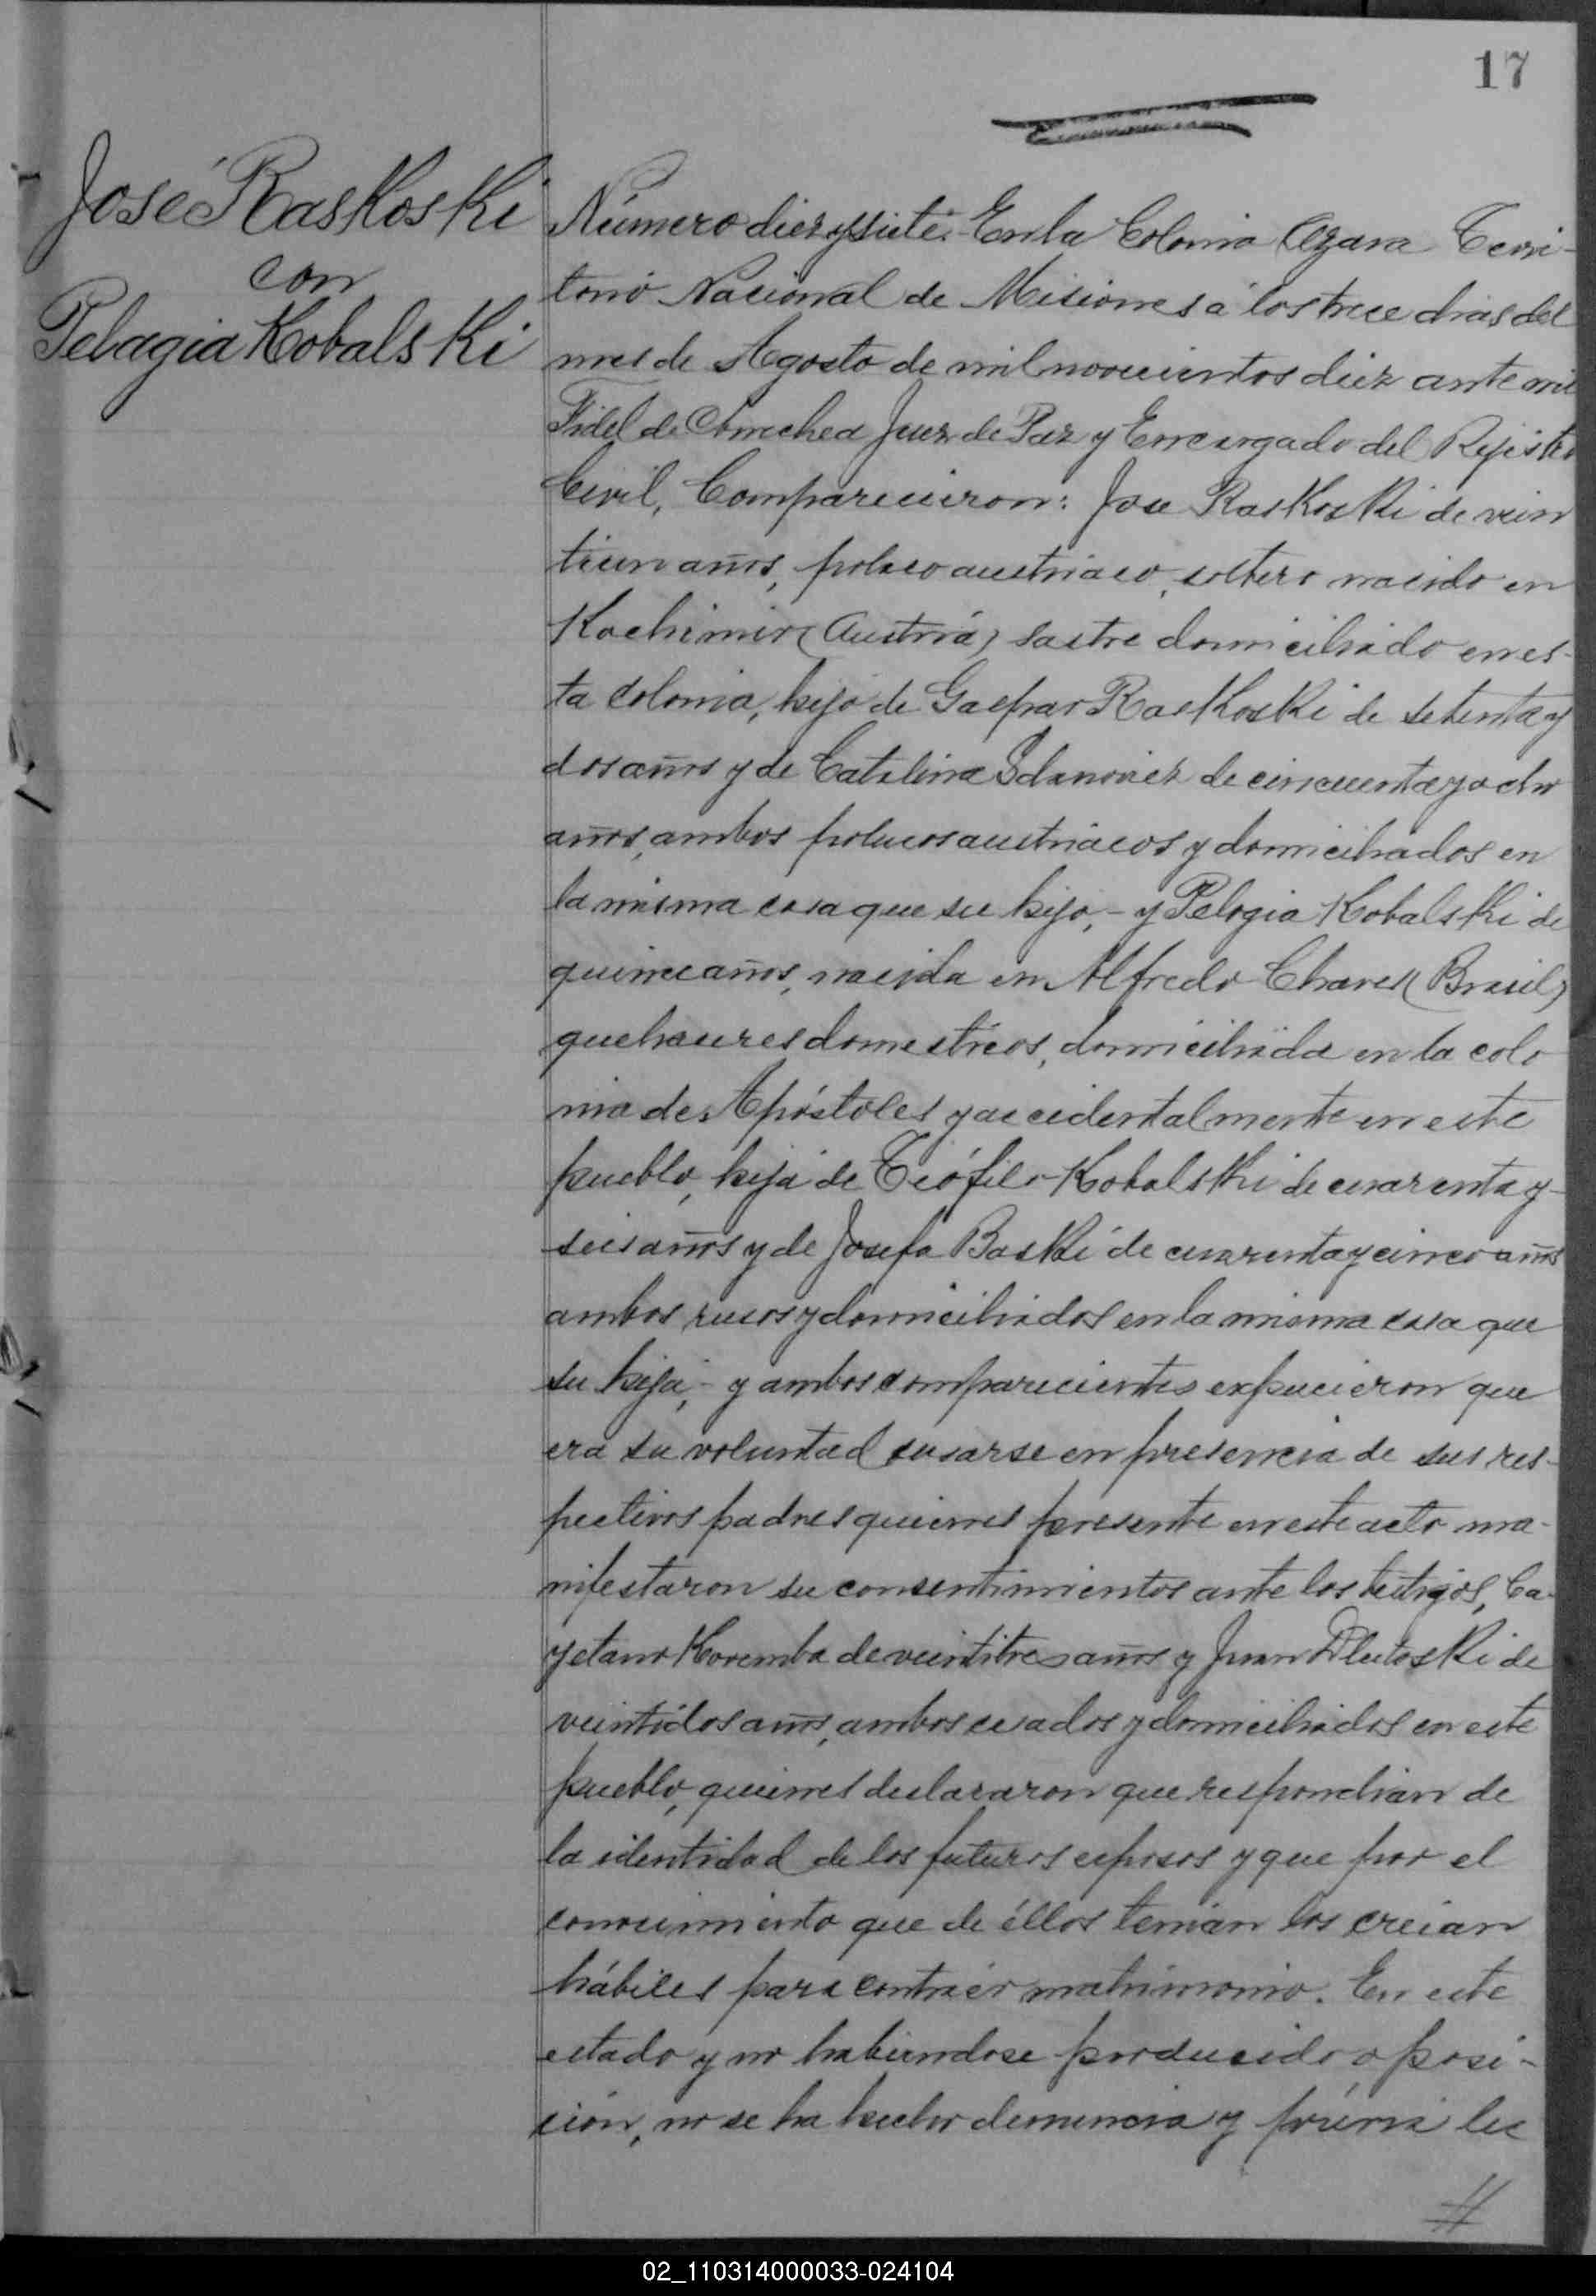 17
José Raskoski
con
Pelagia Kobalski
Número diez y siete. En la Colonia Azara Terri-
torio Nacional de Misiones á los trece dias del
mes de Agosto de mil novecientos diez ante mi
Fidel de Jues de Paz y Encargado del Rejistro
Civil, Comparecieron: Jose Raskoski de vein
tiun años, polaco austriaco, soltero nacido en
Kochimir (Austria) sastre domiciliado en es-
ta colonia, hijo de Gaspar Raskoski de setenta y
dos años y de Catalina de cincuenta y ocho
años, ambos polacos austriacos y domiciliados en
la misma casa que su hijo,- y Pelagia Kobalski de
quince años, nacida en Alfredo Chaves (Brasil)
quehaceres domesticos, domiciliada en la colo
nia de Apóstoles y accidentalmente en este
pueblo, hija de Teófilo Kobalski de cuarenta y
seis años y de Josefa Baski de cuarenta y cinco años
ambos rusos y domiciliados en la misma casa que
su hija,- y ambos comparecientes expucieron que
era su voluntad casarse en presencia de sus res-
pectivos padres quienes presente en este acto ma-
nifestaron su consentimientos ante los testigos, Ca-
yetano Koremba de veintitres años y Juan Dlutoski de
veintidos años, ambos casados y domiciliados en este
pueblo, quienes declararon que respondian de
la identidad de los futuros esposos y que por el
conocimiento que de éllos tenian los creian
hábiles para contraér matrimonio. En este
estado y no habiendose producido oposi-
ción, no se ha hecho denuncia y prévia lec
//
02_110314000033-024104